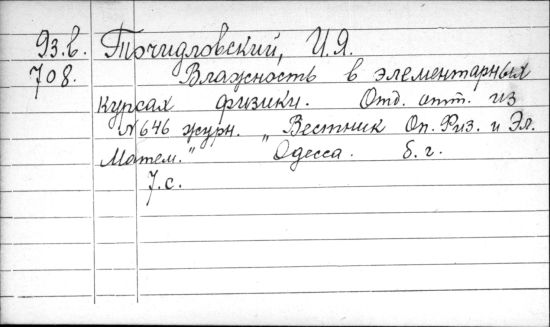 93.в. Точидловский, И.Я.
708. Влажность в элементарных
курсах физики. Отд. отт. из
№646 журн. „Вестник Оп. Физ. и Эл.
Матем.” Одесса. б.г.
7.с.